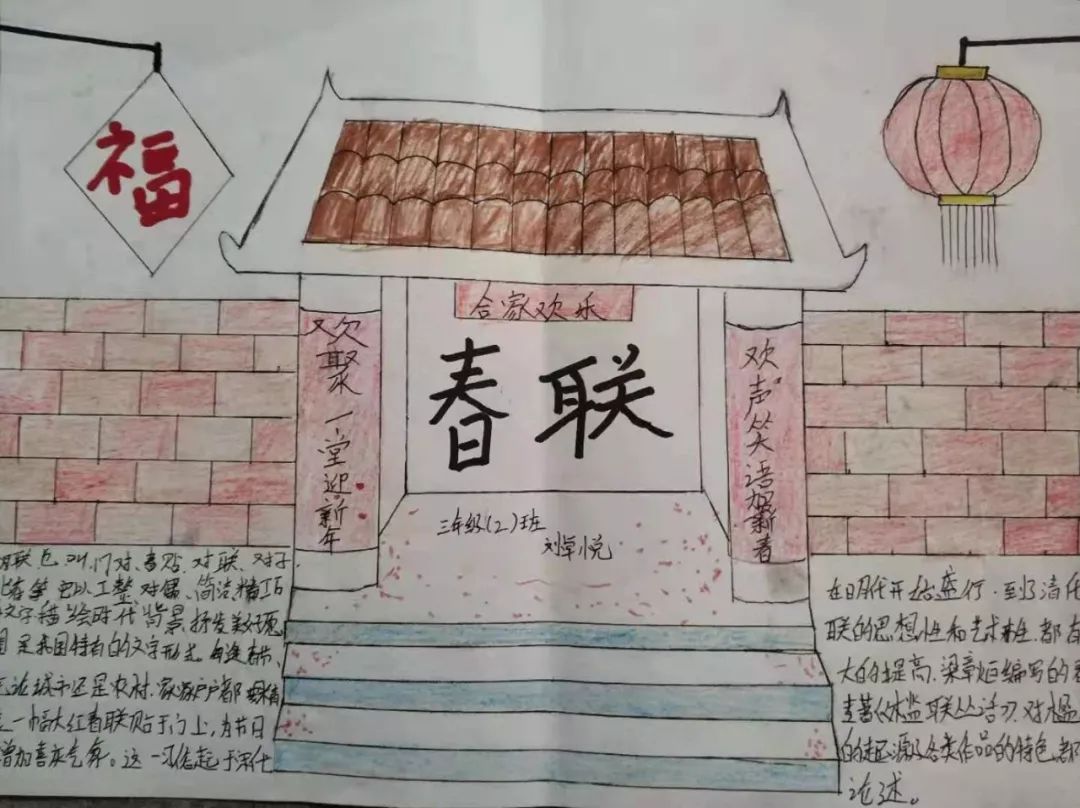 福
合家欢乐
欢聚一堂迎新年
春联
欢声笑语贺新春
三年级(2)班
刘卓悦
联也叫门对、春贴、对联、对子
等它以工整、对偶、简洁、精巧的
文字描绘时代背景,抒发美好愿
是我国特有的文字形式。每逢春节、
无论城市还是农村、家家户户都要精
一幅大红春联贴于门上,为节日
增加喜庆气氛。这一习俗起于宋代
在明代开始盛行.到了清代
联的思想性和艺术性都有
大的提高,梁章钜编写的春
专著《楹联丛话》对楹
的起源及各类作品的特色都
论述。